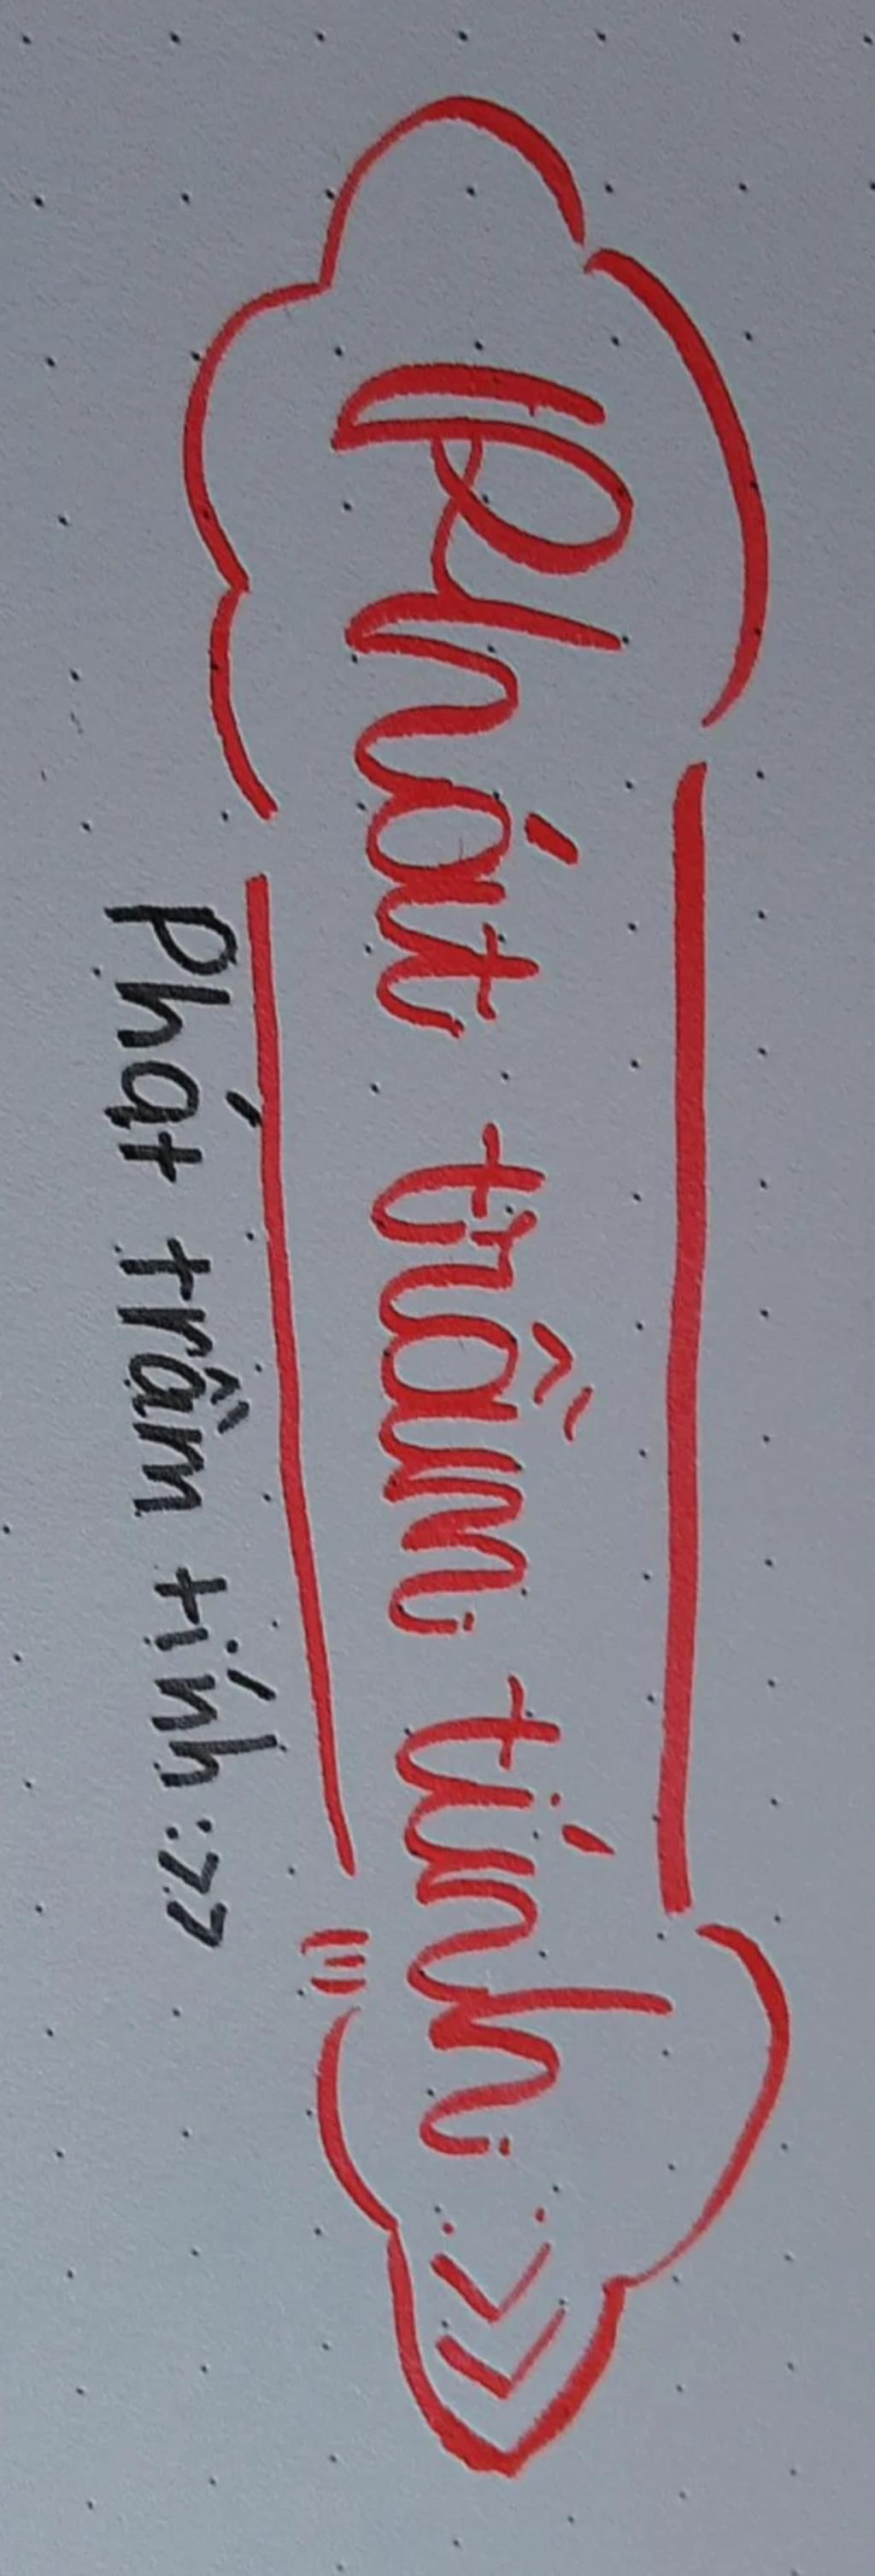 Phát trầm tính :>>
Phát trầm tính :>>